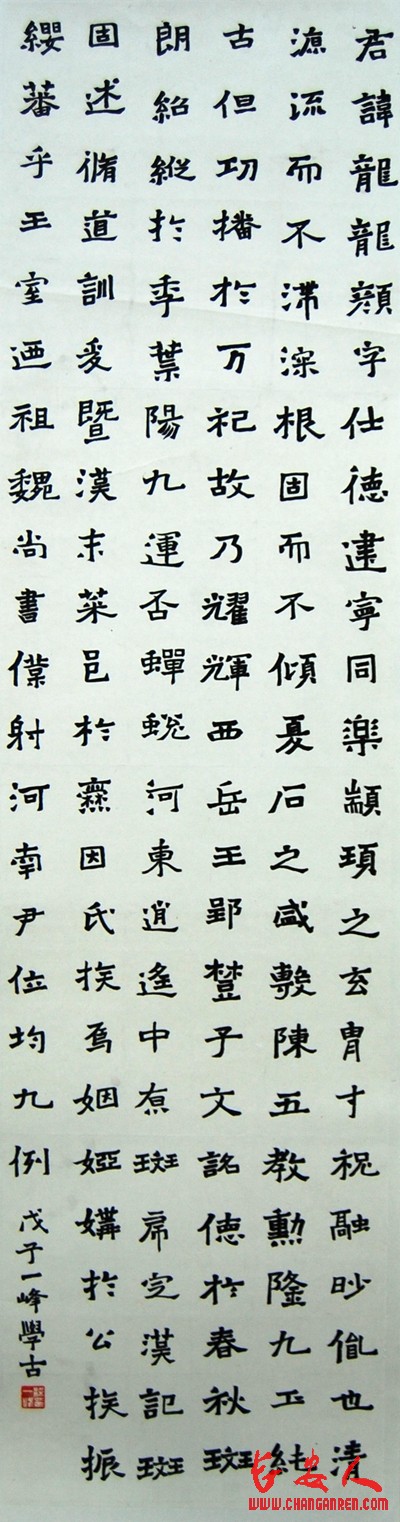 君諱龍龍顔字仕德建寧同楽顓頊之玄胄才祝融眇胤也清
源流而不滞深根固而不傾夏石之盛敷陳五教勳隆九土純
古但功播於万祀故乃耀輝西岳王郢楚子文詺德於春秋斑
朗紹縱於季葉陽九運否蟬蛻河東逍遙中原斑定漢記斑
固述脩道訓爰暨漢末菜邑於爨因氏族焉姻婭媾於公族振
纓蕃乎王室迺祖魏尚書僕射河南尹位均九例
戊子一峰學古
长安人
WWW.CHANGANREN.COM